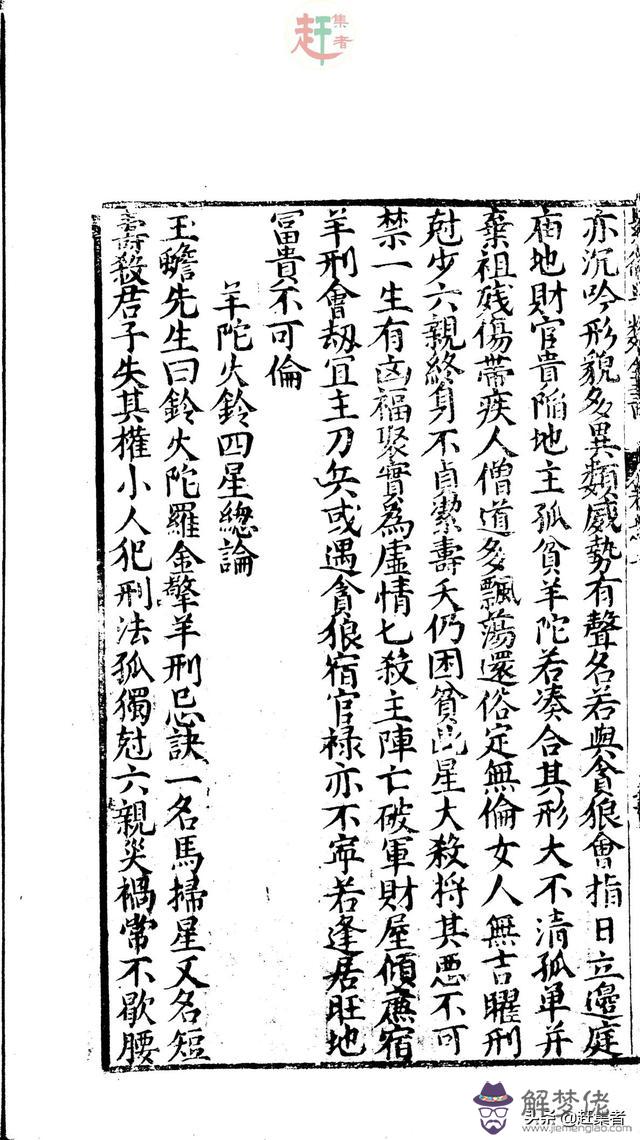 趕集者
亦沉吟形貌多異類威勢有聲名若與貪狼會指日立邊庭
庙地財官貴陷地主孤貧羊陀若凑合其形大不清孤单并
棄祖残傷帶疾人僧道多飄荡還俗定無倫女人無吉曜刑
尅少六親終身不貞潔壽夭仍困貧此星大殺将其恶不可
禁一生有凶福聚實為虛情七殺主陣亡破軍財屋傾廉宿
羊刑會劫宜主刀兵或遇貪狼宿官禄亦不寧若逢居旺地
冨貴不可倫
羊陀火鈴四星總論
玉蟾先生曰鈴火陀羅金擎羊刑忌訣一名馬掃星又名短
壽殺君子失其權小人犯刑法孤獨尅六親災禍常不歇腰
解梦佬
www.jiemenglao.com
头条@赶集者